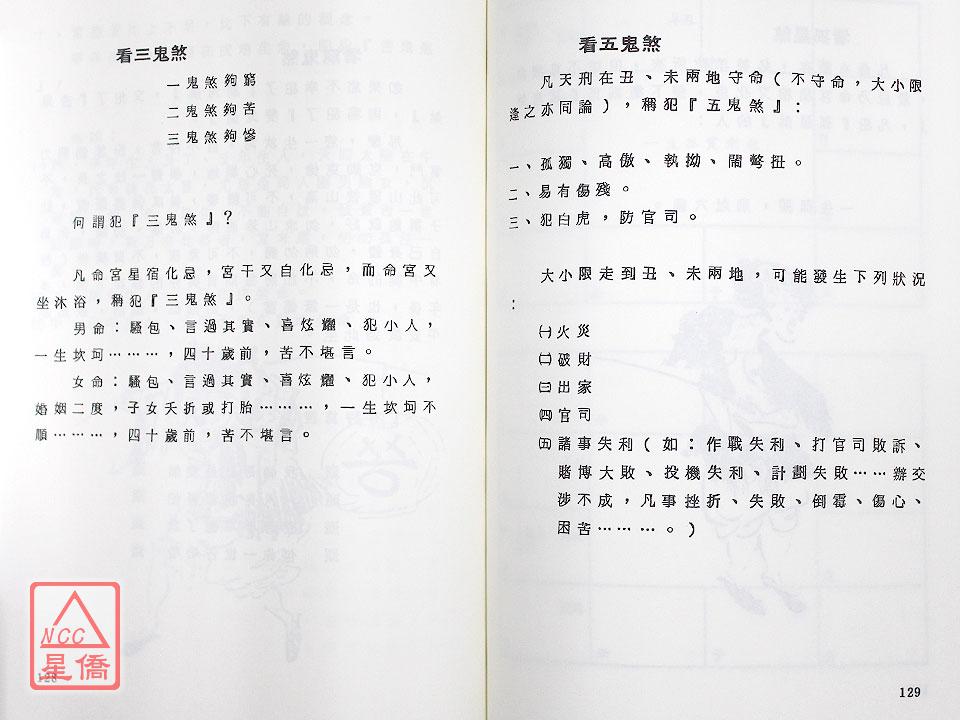 看三鬼煞
一鬼煞夠窮
二鬼煞夠苦
三鬼煞夠慘
何謂犯『三鬼煞』？
凡命宮星宿化忌，宮干又自化忌，而命宮又
坐沐浴，稱犯『三鬼煞』。
男命：騷包、言過其實、喜炫耀、犯小人，
一生坎坷………，四十歲前，苦不堪言。
女命：騷包、言過其實、喜炫耀、犯小人，
婚姻二度，子女夭折或打胎………，一生坎坷不
順………，四十歲前，苦不堪言。
NCC
星僑
128
看五鬼煞
凡天刑在丑、未兩地守命（不守命，大小限
逢之亦同論），稱犯『五鬼煞』：
一、孤獨、高傲、執拗、鬧彆扭。
二、易有傷殘。
三、犯白虎，防官司。
大小限走到丑、未兩地，可能發生下列狀況
：
㈠火災
㈡破財
㈢出家
㈣官司
㈤諸事失利（如：作戰失利、打官司敗訴、
賭博大敗、投機失利、計劃失敗……辦交
涉不成，凡事挫折、失敗、倒霉、傷心、
困苦………。）
129